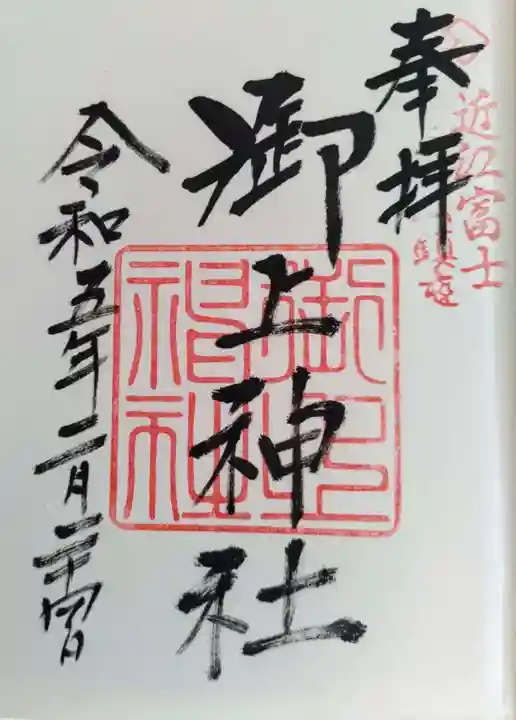 近江富士
鎮座
奉拝
御上神社
御上
神社
令和五年二月二十四日